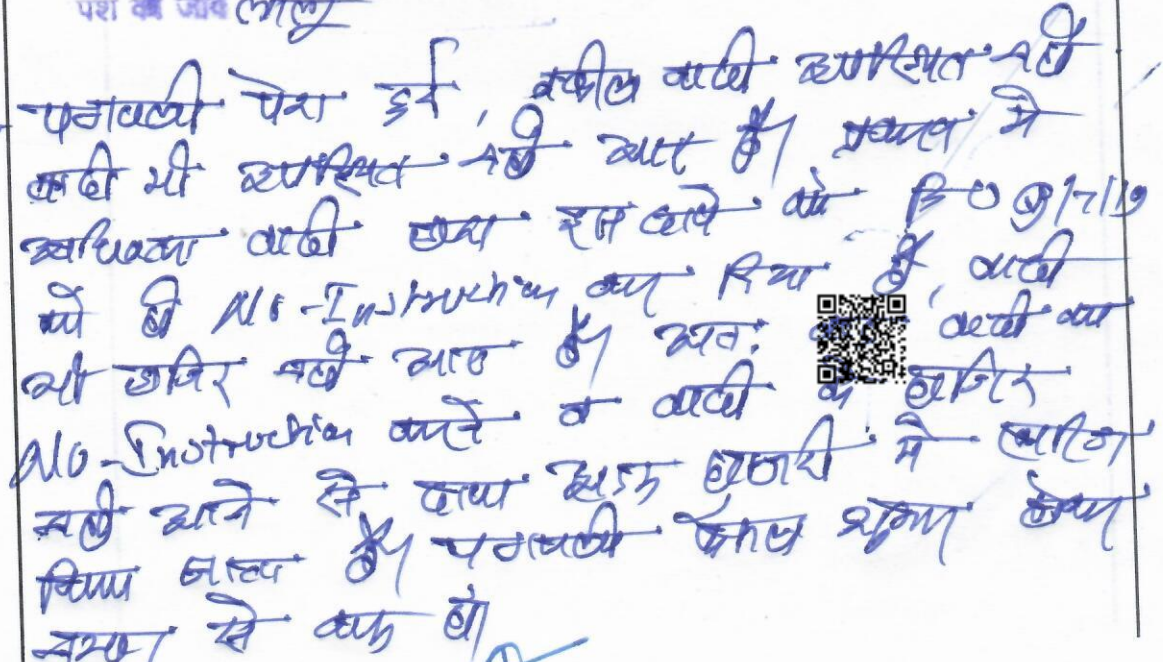 पेश की जावे
पत्रावली पेश हुई, वकील वादी उपस्थित नही
वादी भी उपस्थित नही आए है। प्रकरण मे
अधिवक्ता वादी द्वारा इस दावे को 19
को ही No-Instruction कर दिया है, वादी
भी हाजिर नही आए है। अतः वादी का
No-Instruction करने व वादी के हाजिर
नही आने से दावा अदम हाजरी मे खारिज
किया जाता है। पत्रावली फैसल शुमार होकर
नम्बर से कम हो।